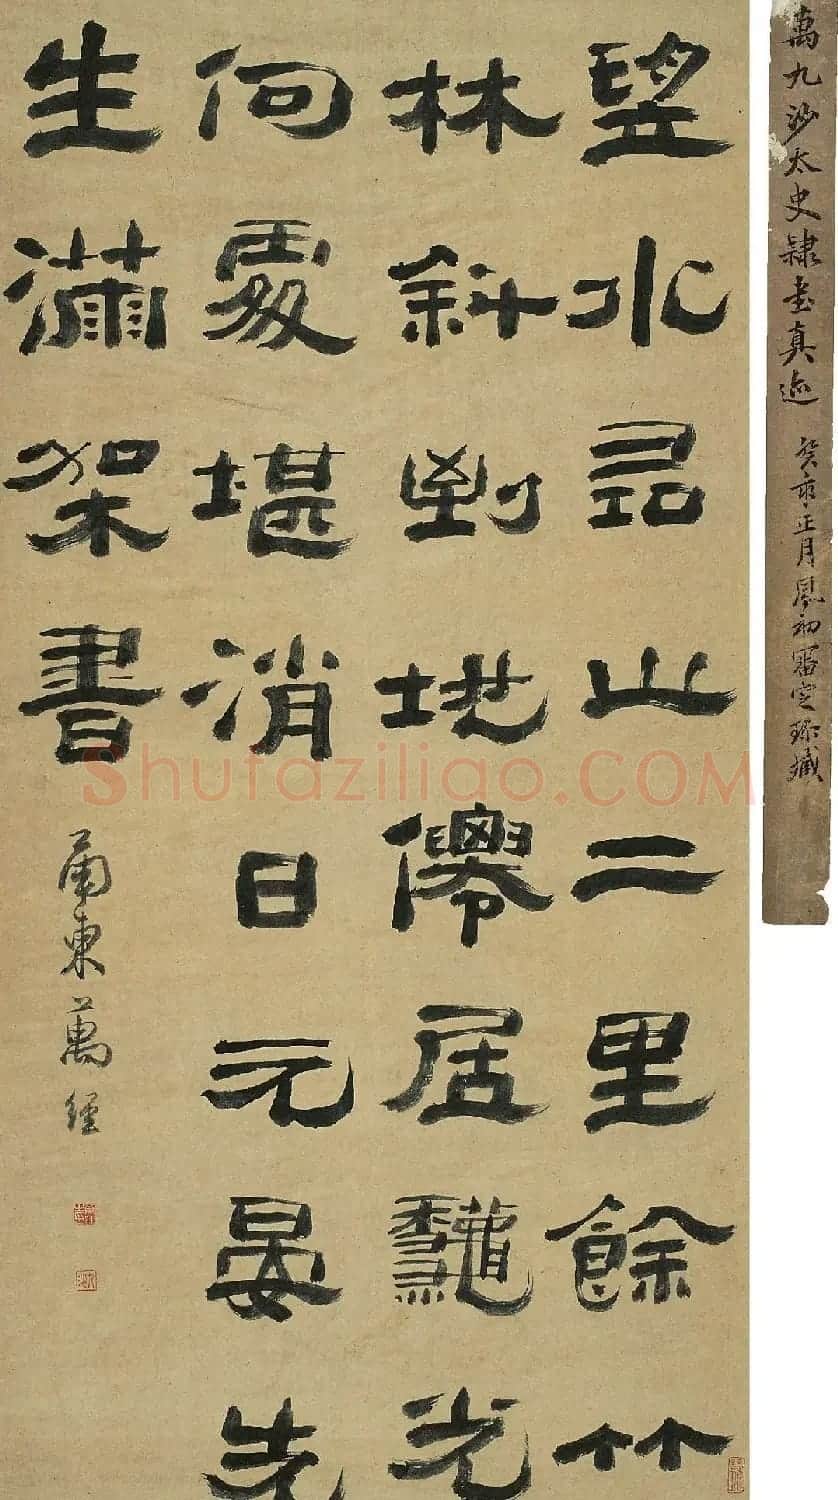 萬九沙太史隸書真迹
癸亥正月初審定珍藏
望水尋山二里餘竹
林斜到地僊居龝光
何處堪消日元晏先
生滿架書
甬東萬經
Shufaziliao.COM